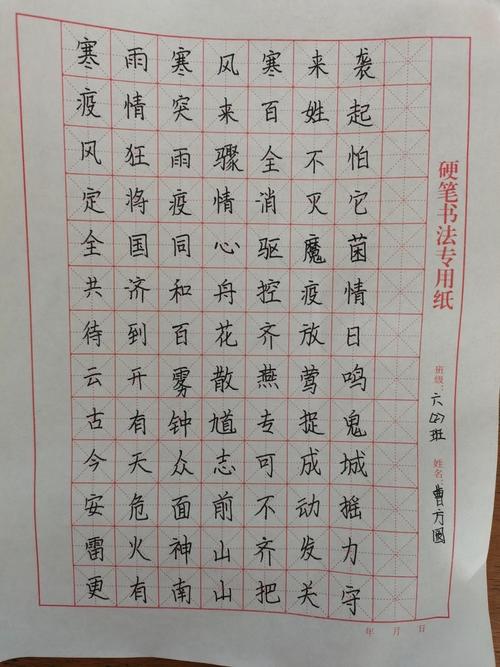 寒雨寒风寒来袭
疫情突来百姓起
风狂雨骤全不怕
定将疫情消灭它
全国同心驱魔菌
共济和舟控疫情
待到百花齐放日
云开雾散燕莺鸣
古有钟馗专捉鬼
今天众志可成城
安危面前不动摇
雷火神山齐发力
更有南山把关守
硬笔书法专用纸
班级：六(4)班
姓名：曹方圆
年 月 日